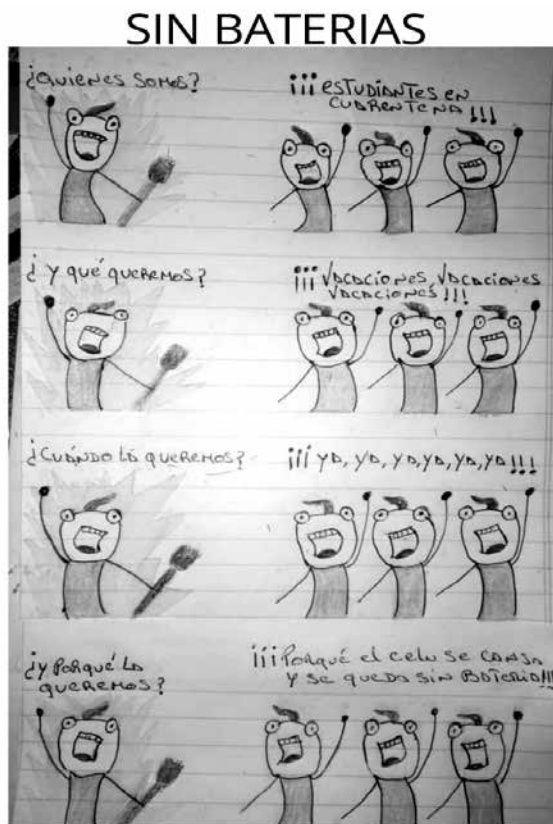 SIN BATERIAS
¿QUIENES SOMOS?
¡¡¡ESTUDIANTES EN
CUARENTENA!!!
¿Y QUÉ QUEREMOS?
¡¡¡VACACIONES, VACACIONES
VACACIONES!!!
¿CUÁNDO LA QUEREMOS?
¡¡¡YA, YA, YA, YA, YA, YA!!!
¿Y PORQUÉ LA
QUEREMOS?
¡¡¡PORQUÉ el celu se CANSA
Y se queda SIN BATERIA!!!